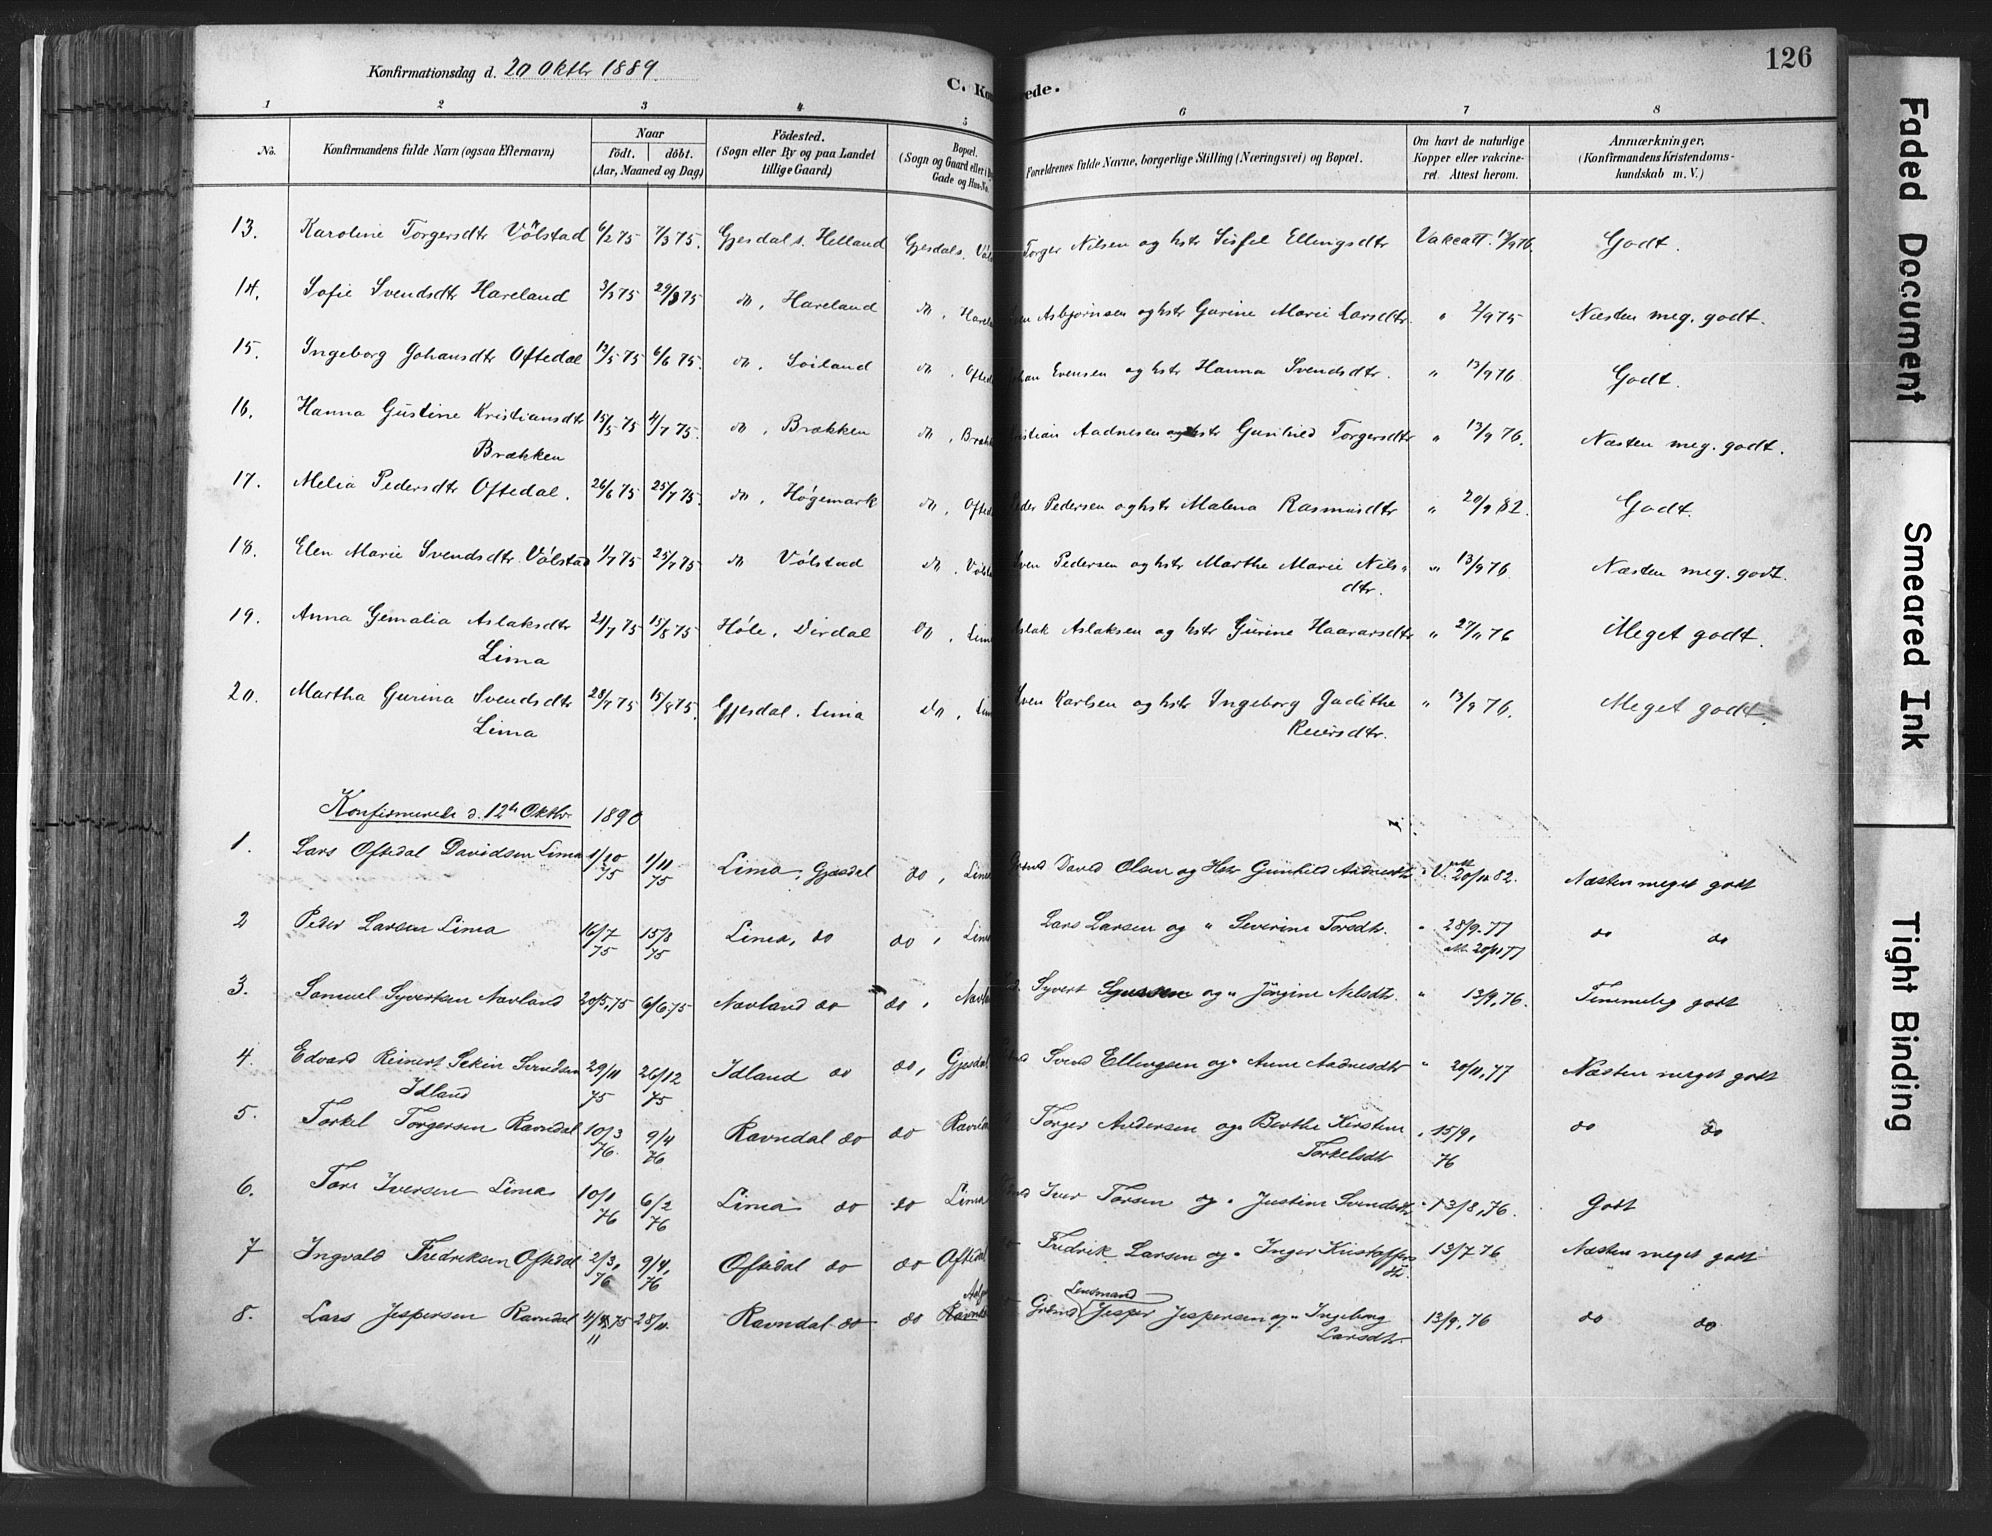 126
Konfirmationsdag d. 20 Oktbr 1889.
C. Kon rede.
1 2 3 4 5 6 7 8
No. Konfirmandens fulde Navn (ogsaa Efternavn) Naar födt. döbt. (Aar, Maaned og Dag) Födested. (Sogn eller By og paa Landet tillige Gaard) Bopæl. (Sogn og Gaard eller i By Gade og Hus-No. Forældrenes fulde Navne, borgerlige Stilling (Næringsvei) og Bopæl. Om havt de naturlige Kopper eller vakcineret. Attest herom. Anmærkninger. (Konfirmandens Kristendomskundskab m. V.)
13. Karoline Torgersdtr Vølstad 6/2 75 7/3 75. Gjesdal s. Helland Gjesdal s. Vøl Torger Nilsen og hstr Sisfel Ellingsdtr Vakcatt. Godt.
14. Sofie Svendsdtr Hareland 3/3 75 29/3 75 do, Hareland do, Harel Asbjørnsen og hstr Gurine Marie Larsdtr. " 2/9 75 Næsten meg. godt.
15. Ingeborg Johansdtr Oftedal 12/5 75 6/6 75. do, Soiland do, Ofted han Evensen og hstr Hanna Svendsdtr. " 13/9 76 Godt.
16. Hanna Gustine Kristiansdtr 15/5 75 4/7 75. do, Brækken do, Bræk ristian Aadnesen og hstr Gunhild Torgersdtr " 13/9 76. Næsten meg. godt.
Brækken
17. Melia Pedersdtr Oftedal. 26/6 75 25/7 75 do, Høgemark do, Ofted Peder Pedersen og hstr Malena Rasmusdtr " 20/9 82. Godt.
18. Elen Marie Svendsdtr Vølstad 1/7 75 25/7 75 do Vølstad do, Vølst Sven Pedersen og hstr Marthe Marie Nils- " 13/9 76 Næsten meg. godt.
dtr.
19. Anna Gemalia Aslaksdtr 21/7 75 15/8 75 Høle, Dirdal do, Lima Aslak Aslaksen og hstr Gurine Haavarsdtr " 27/11 76 Meget godt.
Lima
20. Martha Gurina Svendsdtr 28/7 75 15/8 75. Gjesdal. Lima do, Lim Sven Karlsen og hstr Ingeborg Juditthe " 13/9 76. Meget godt.
Lima Reiersdtr.
Konfirmerede d. 12te Oktbr 1890
1. Lars Oftedal Davidsen Lima 1/10 75 1/11 75 Lima, Gjesdal do, Lima Grmd David Olsen og Hstr Gunhild Aadnesdtr " V. att 20/11 82. Næsten meget godt
2 Peder Larsen Lima 16/7 75 15/8 75 Lima, do do, Lima Lars Larsen og " Severine Torsdtr. " 28/9. 77 att. 20/11 77 do do
3. Samuel Syvertsen Nævland 20/5, 75 6/6 75 Nævland do do, Nævla Syvert og " Jörgine Nilsdtr. " 13/9, 76. Temmelig godt
4. Edvard Reinert Sekin Svendsen 29/11 75 26/12 75 Idland do do, Gjesdal Svend Ellingsen og " Anne Aadnesdtr " 20/11, 77 Næsten meget godt
Idland
5. Torkel Torgersen Ravndal 10/3 76. 9/4 76 Ravndal do do Ravnda Torger Andersen og " Berthe Kirstine " 15/9, 76 do do
Torkelsdtr
6. Tore Iversen Lima 10/1 76 6/2 76 Lima do do Lima Iver Torsen og " Justine Svendsdtr " 13/8, 76. Godt
7 Ingvald Fredriksen Oftedal 2/3, 76 9/4, 76 Oftedal do do Oftedal Fredrik Larsen og " Inger Kristoffers 13/7 76 Næsten meget godt
dtr.
8. Lars Jespersen Ravndal 28/11. Ravndal do do Ravnd Grmd Lensmand Jesper Jespersen og " Ingeborg 13/9, 76 do do
Larsdtr
Faded Document
Smeared Ink
Tight Binding